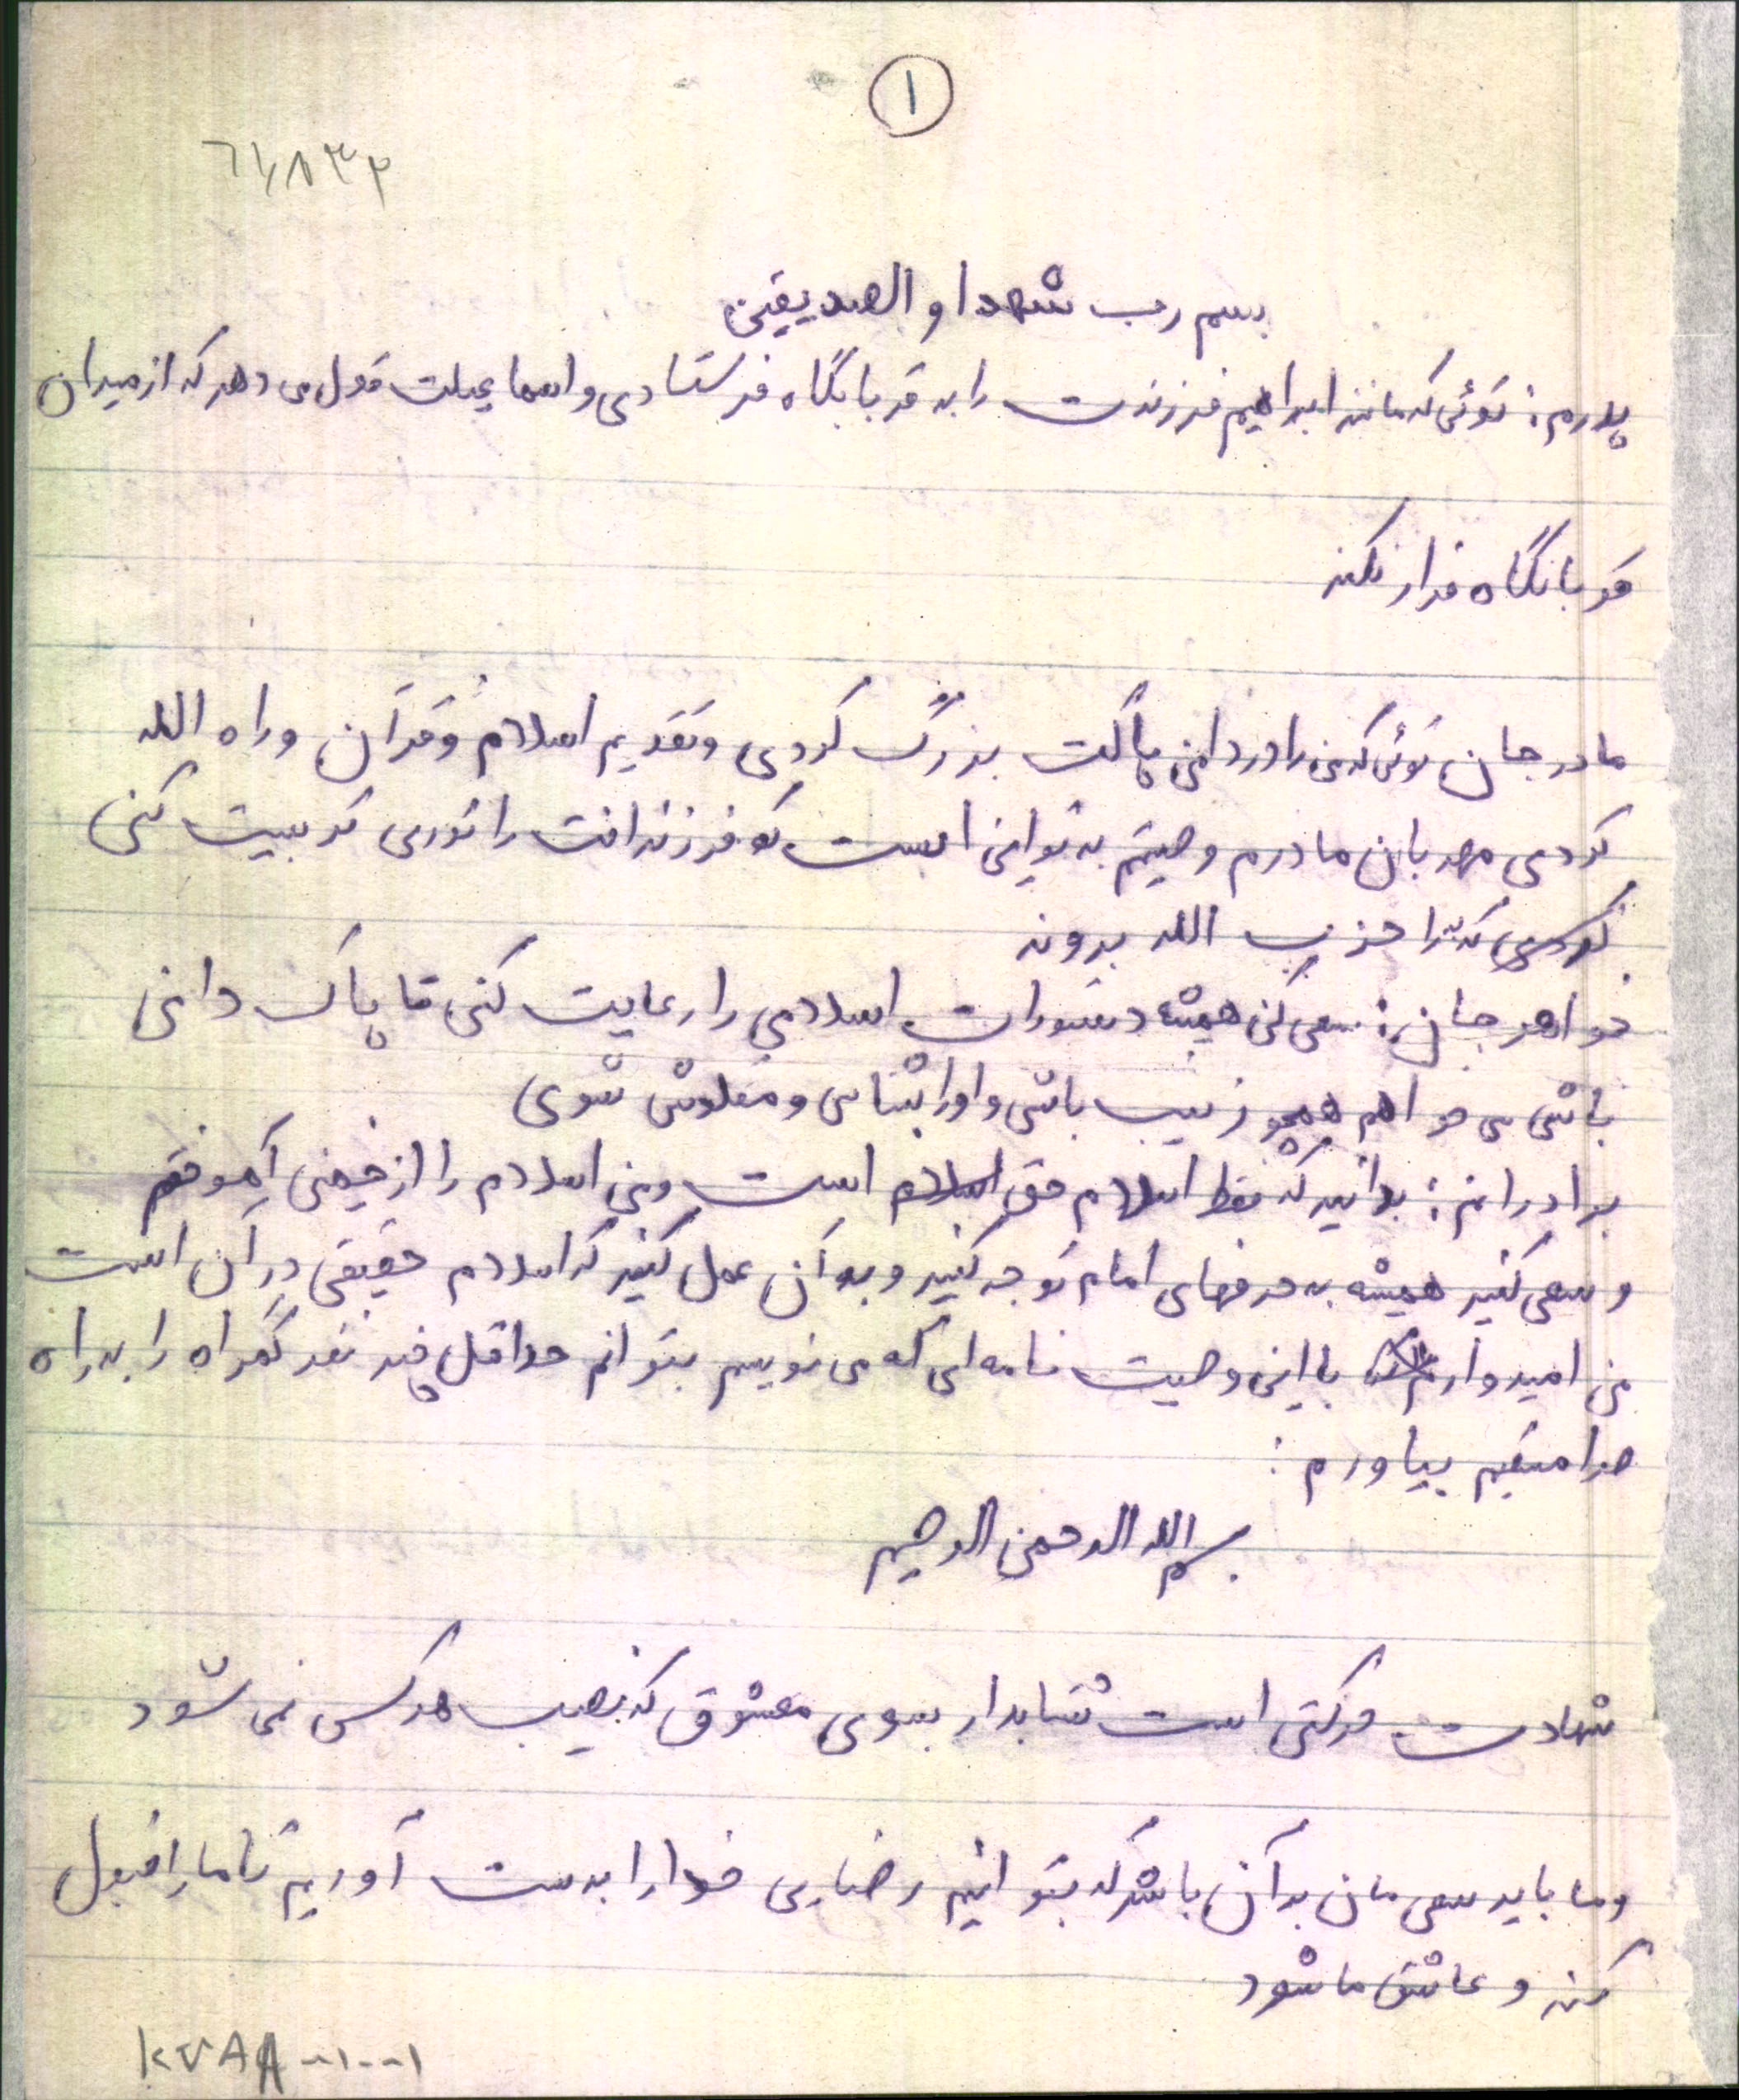 ۱
بسم رب شهدا و الصدیقین
پدرم: توئی که مانند ابراهیم فرزندت را به قربانگاه فرستادی و اسماعیلت قول می دهد که از میدان
قربانگاه فرار نکند
مادر جان توئی که من را در دامن پاکت بزرگ کردی و تقدیم اسلام و قرآن و راه الله
کردی مهربان مادرم وصیتم به تو این است که فرزندانت را توری تربیت کنی
که برا حزب الله بروند
خواهر جان: سعی کن همیشه دستورات اسلامی را رعایت کنی تا پاک دامن
باشی می خواهم همچو زینب باشی و او را بشناسی و مقلدش شوی
برادرانم: بدانید که فقط اسلام حق است و من اسلام را از خمینی آموختم
و سعی کنید همیشه به حرفهای امام توجه کنید و به آن عمل کنید که اسلام حقیقی در آن است
من امیدوارم با این وصیت نامه ای که می نویسم بتوانم حداقل چند نفر گمراه را به راه
صرا مستقیم بیاورم:
بسم الله الرحمن الرحیم
شهادت حرکتی است شتابدار بسوی معشوق که نصیب هر کس نمی شود
و ما باید سعی مان به آن باشد که بتوانیم رضایی خدا را بدست آوریم تا ما را قبول
کند و عاشق ما شود